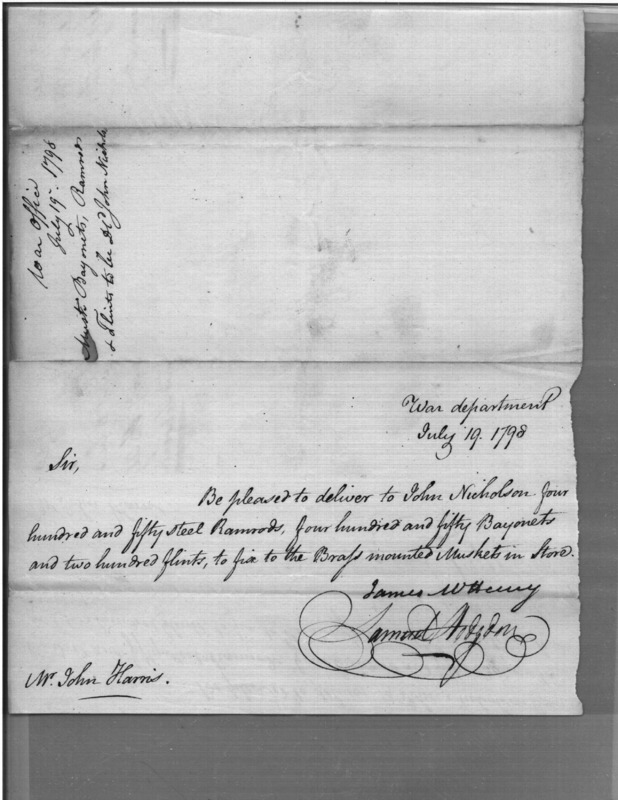 War Office
July 19th 1798
Bayonets, Ramrods
& Flints to be Dd John Nichols
War department
July 19. 1798
Sir,
Be pleased to deliver to John Nicholson four
hundred and fifty steel Ramrods, four hundred and fifty Bayonets
and two hundred flints, to fix to the Brass mounted Muskets in Store.
James McHenry
Samuel Hodgdon
Mr. John Harris.